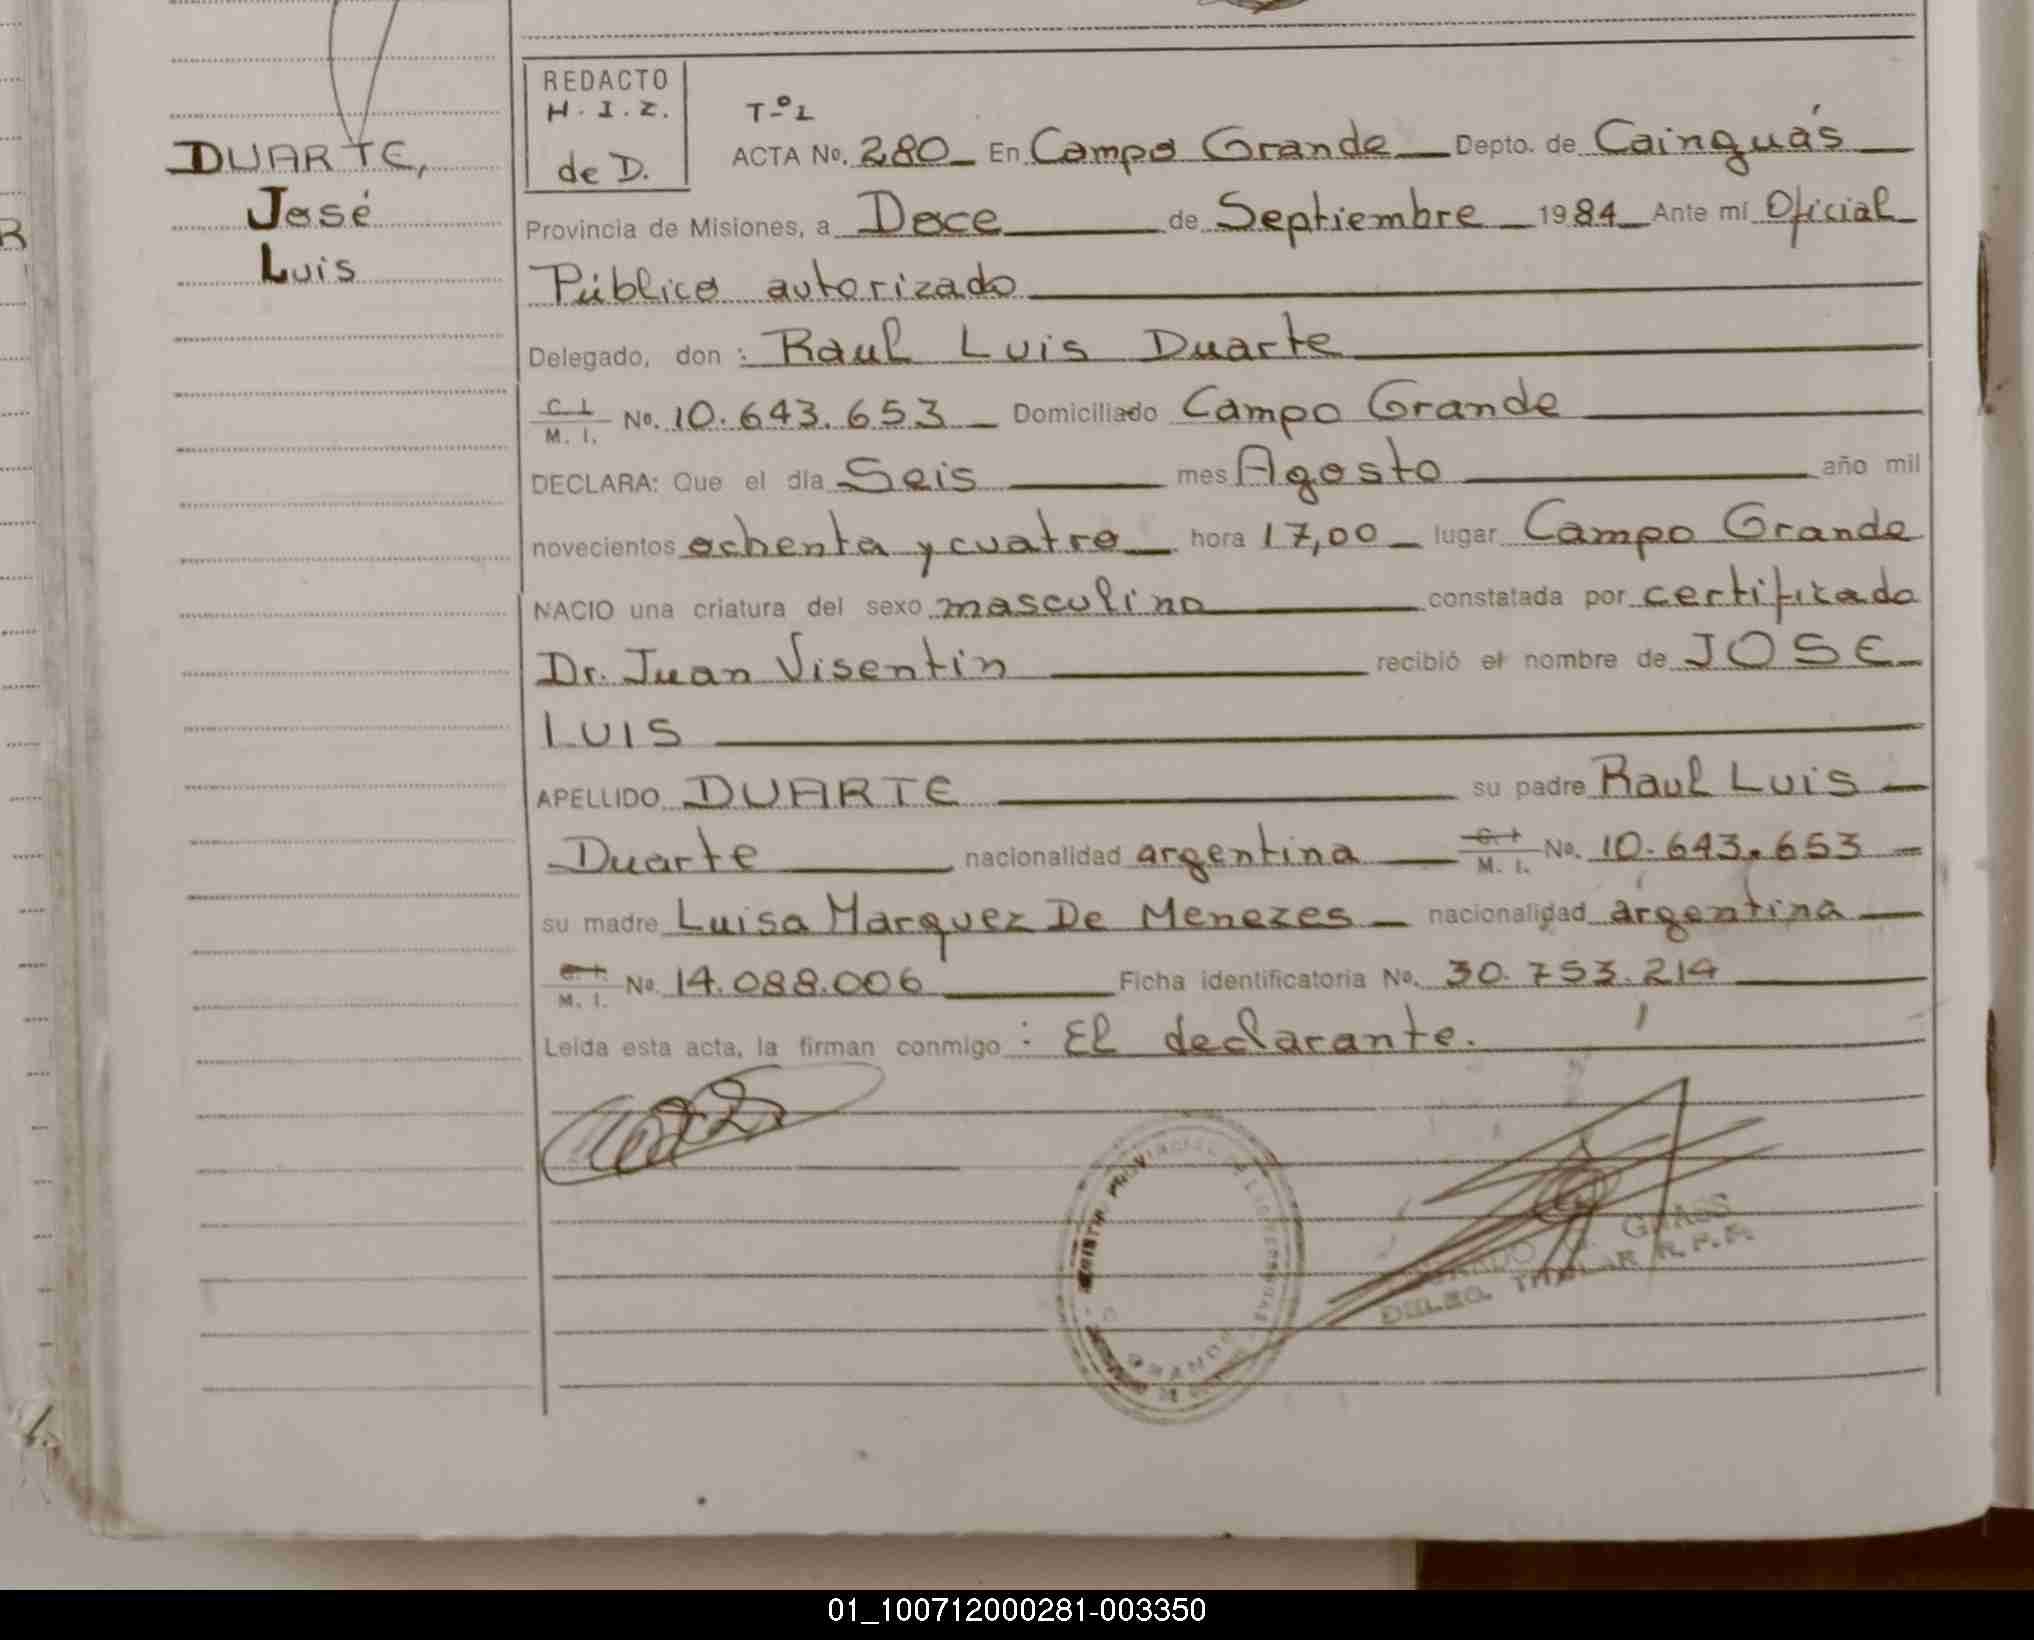 DUARTE,
José
Luis
R
REDACTO
H. I. Z.
de D.
Tº 1
ACTA No. 280 En Campo Grande Depto. de Cainguás
Provincia de Misiones, a Doce de Septiembre 1984 Ante mí Oficial
Público autorizado
Delegado, don : Raul Luis Duarte
C. I. M. I. No. 10.643.653 Domiciliado Campo Grande
DECLARA: Que el día Seis mes Agosto año mil
novecientos ochenta y cuatro hora 17,00 lugar Campo Grande
NACIO una criatura del sexo masculino constatada por certificado
Dr. Juan Visentin recibió el nombre de JOSE
LUIS
APELLIDO DUARTE su padre Raul Luis
Duarte nacionalidad argentina C. I. M. I. No. 10.643.653
su madre Luisa Marquez De Menezes nacionalidad argentina
C. I. M. I. No. 14.088.006 Ficha identificatoria No. 30.753.214
Leída esta acta, la firman conmigo : El declarante.
GRASS
DELEG. TITULAR R.P.P.
01_100712000281-003350